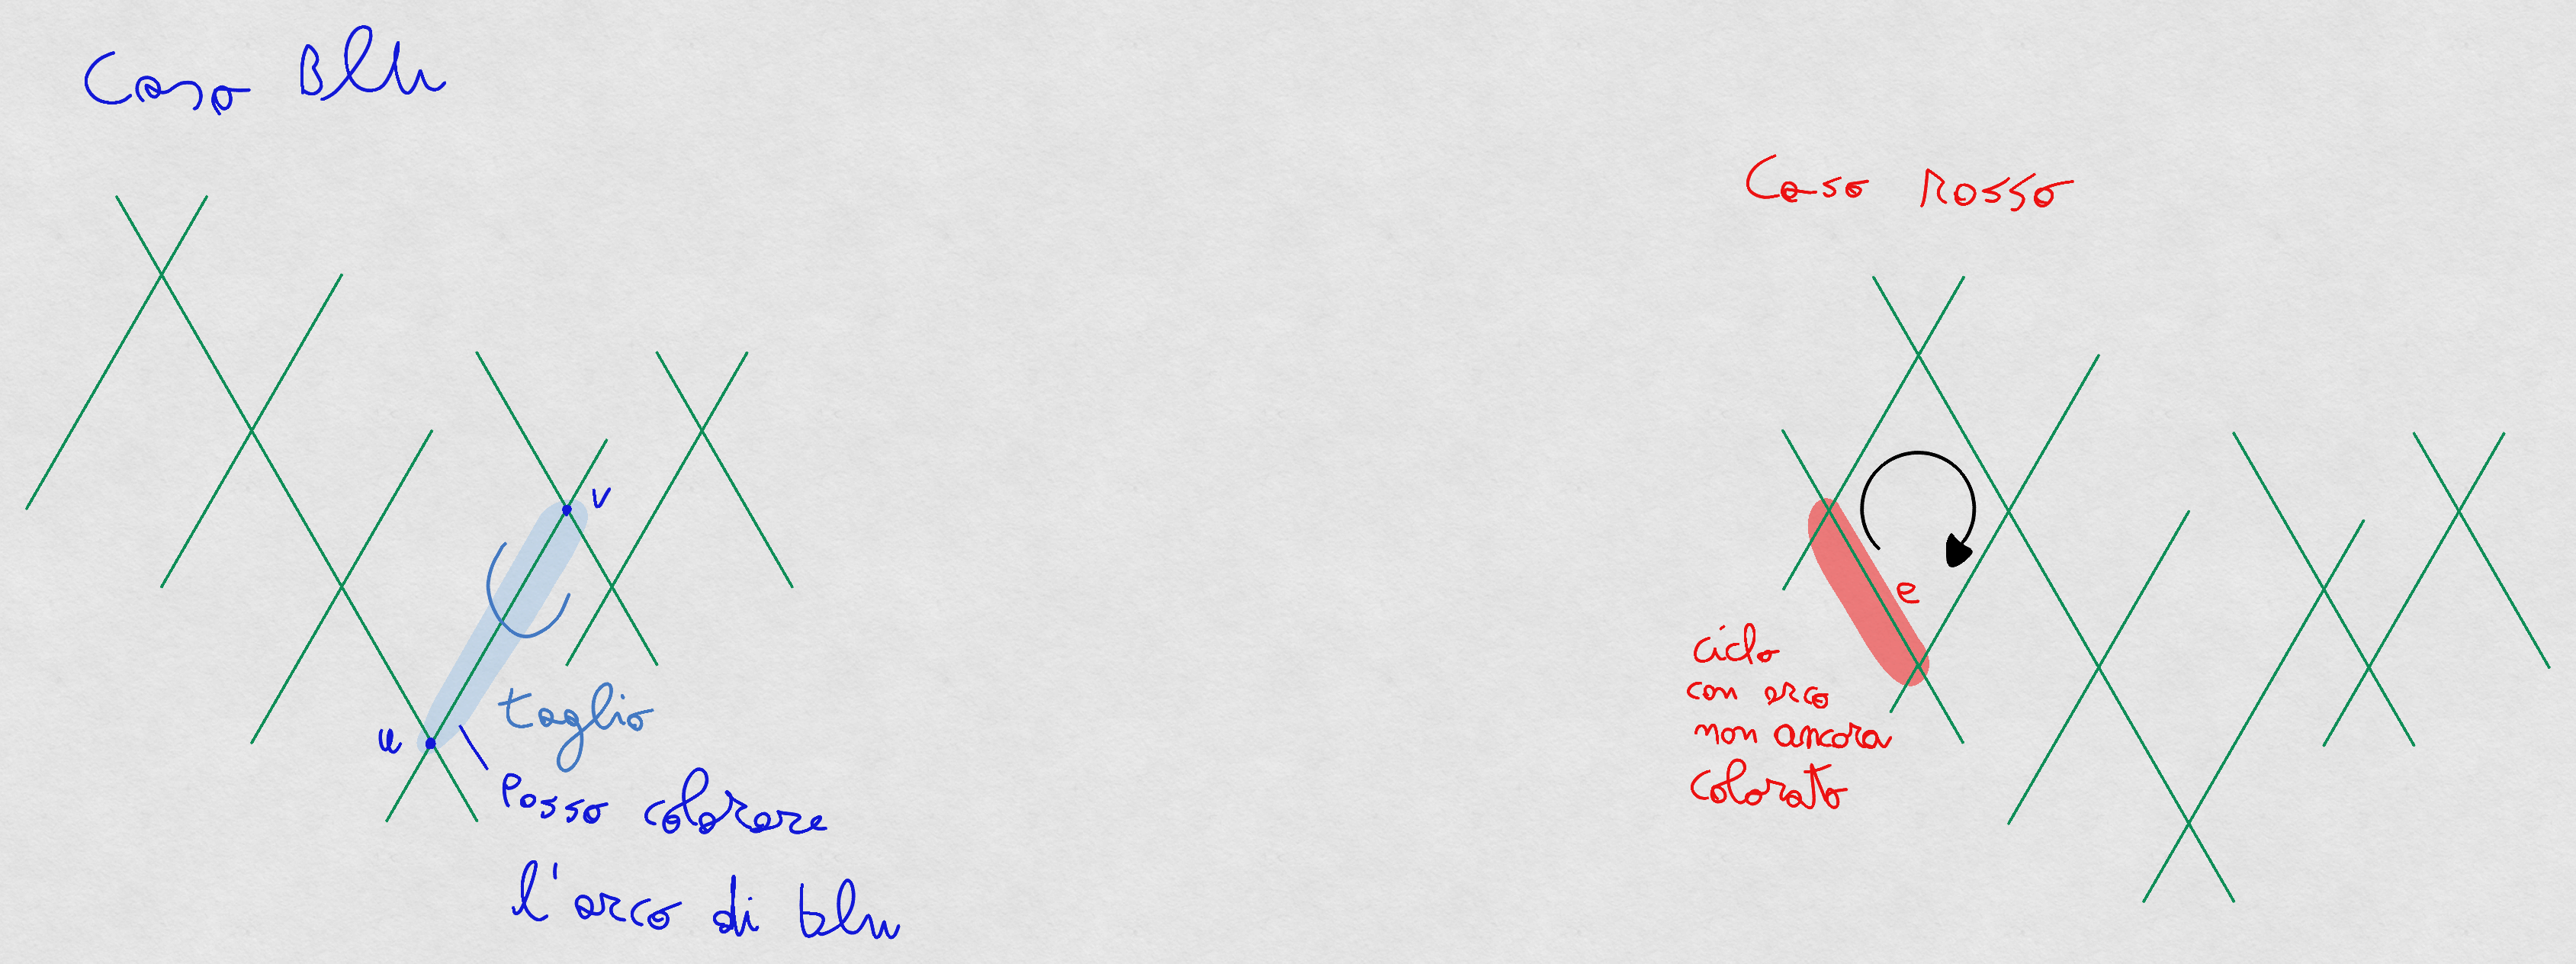 Caso Blu
v
taglio
u
Posso colorare
l'arco di blu
Caso Rosso
e
ciclo
con arco
non ancora
colorato